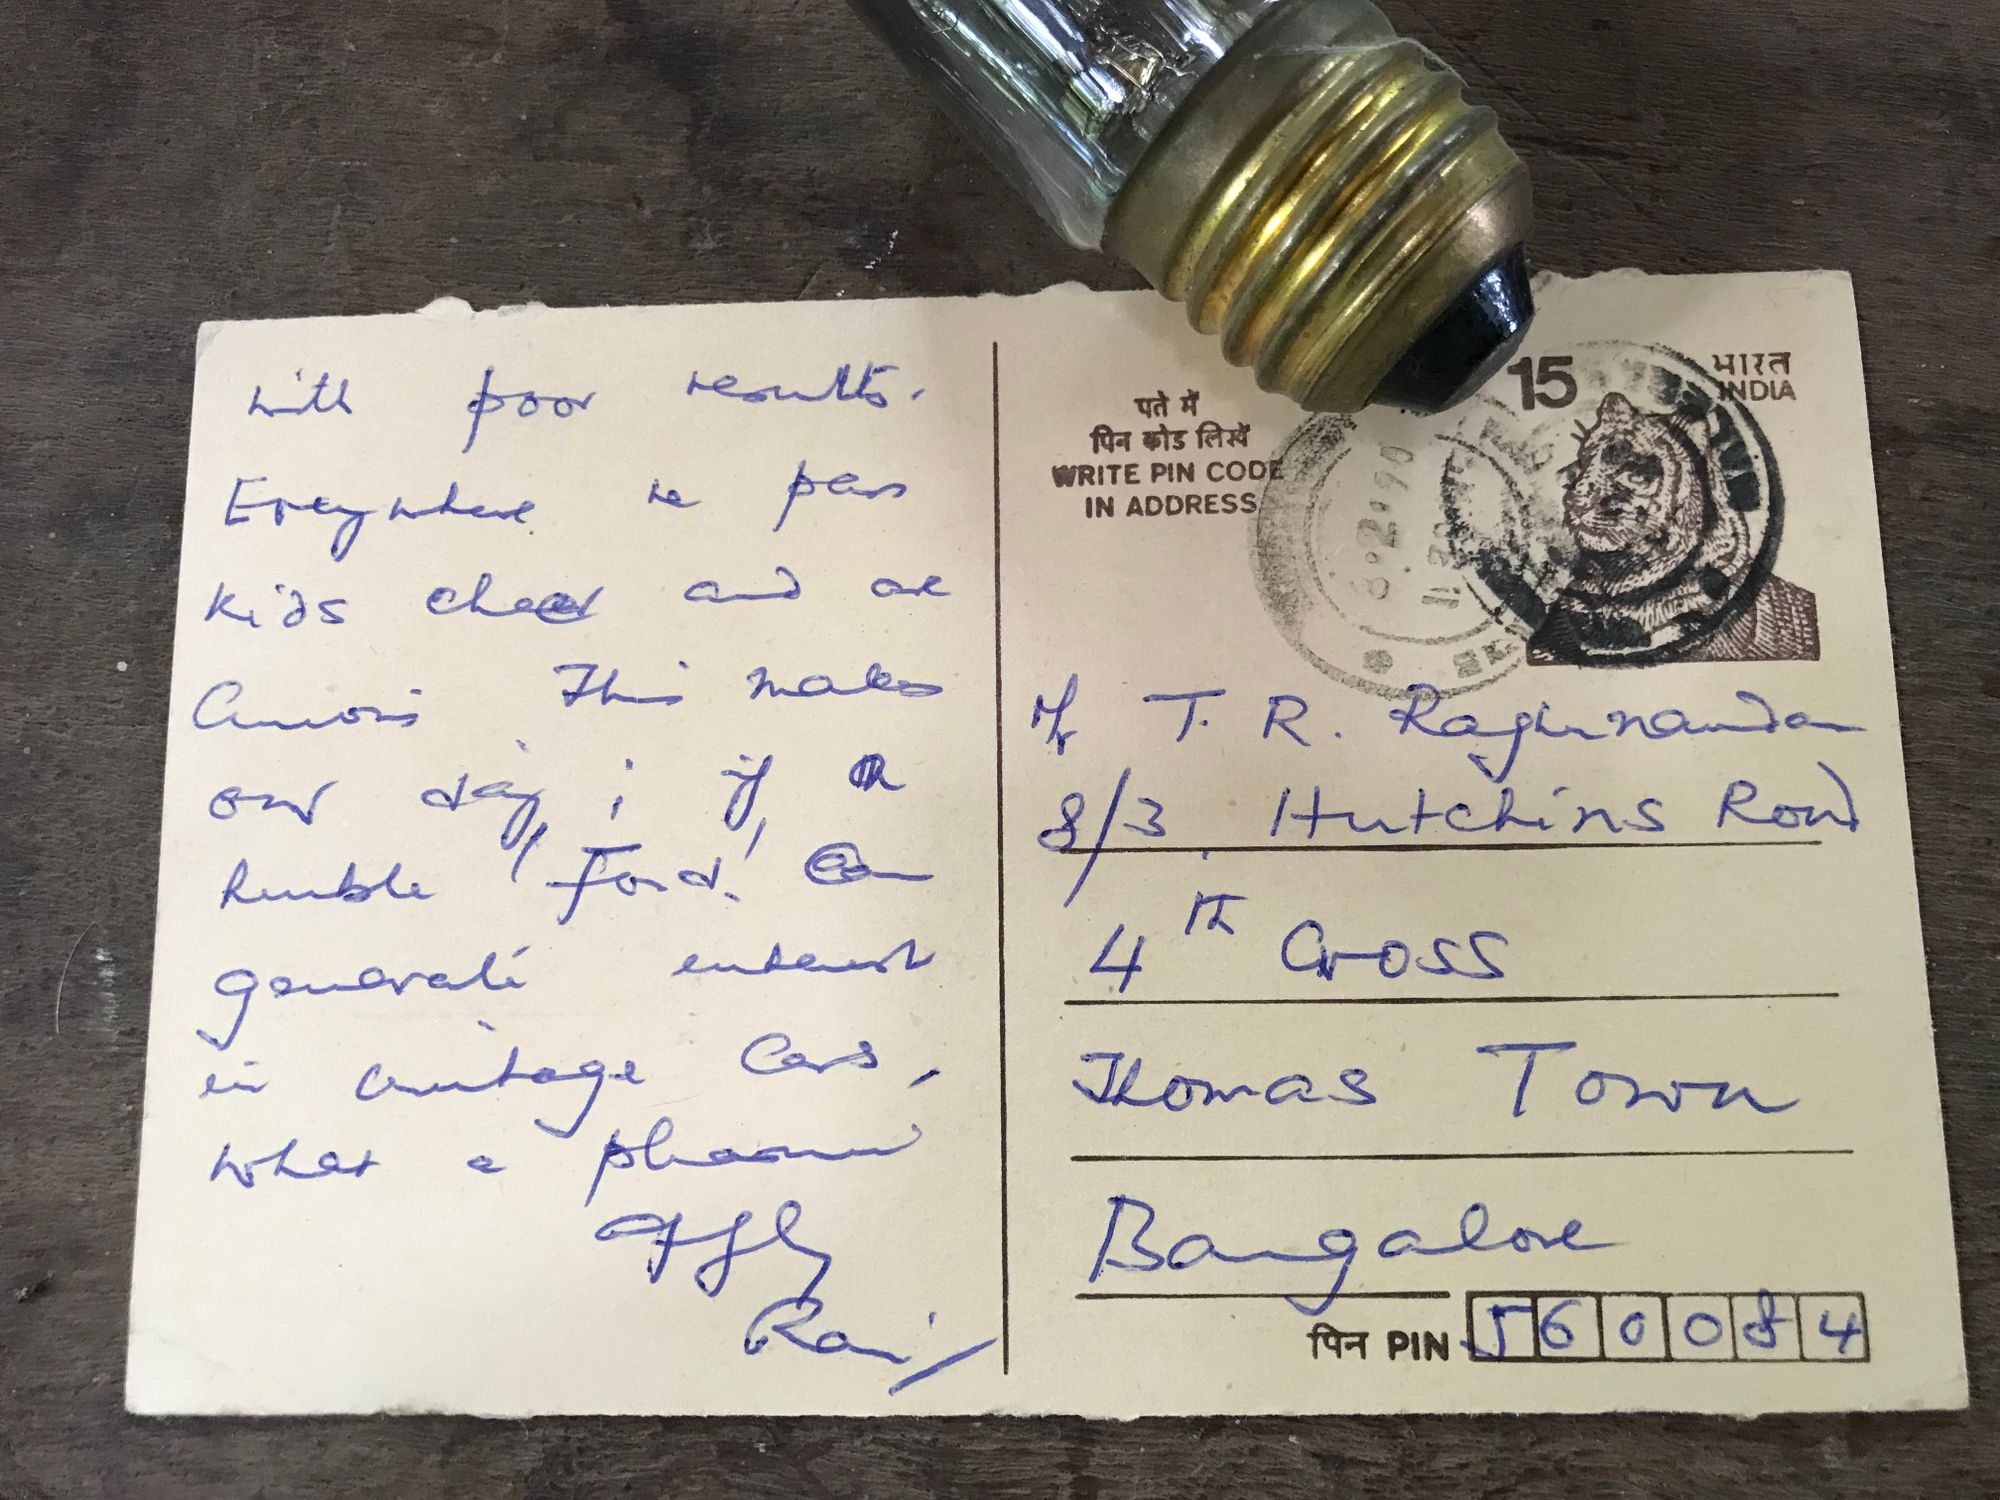 with poor results.
Everywhere we pass
kids cheer and are
Curious This makes
our day, ; if a
humble 'Ford' Can
generate interest
in vintage Cars,
what a pleasure
Ravi
पते में
पिन कोड लिखें
WRITE PIN CODE
IN ADDRESS
15
भारत
INDIA
Mr T. R. Raghunandan
8/3 Hutchins Road
4th Cross
Thomas Town
Bangalore
पिन PIN 560084